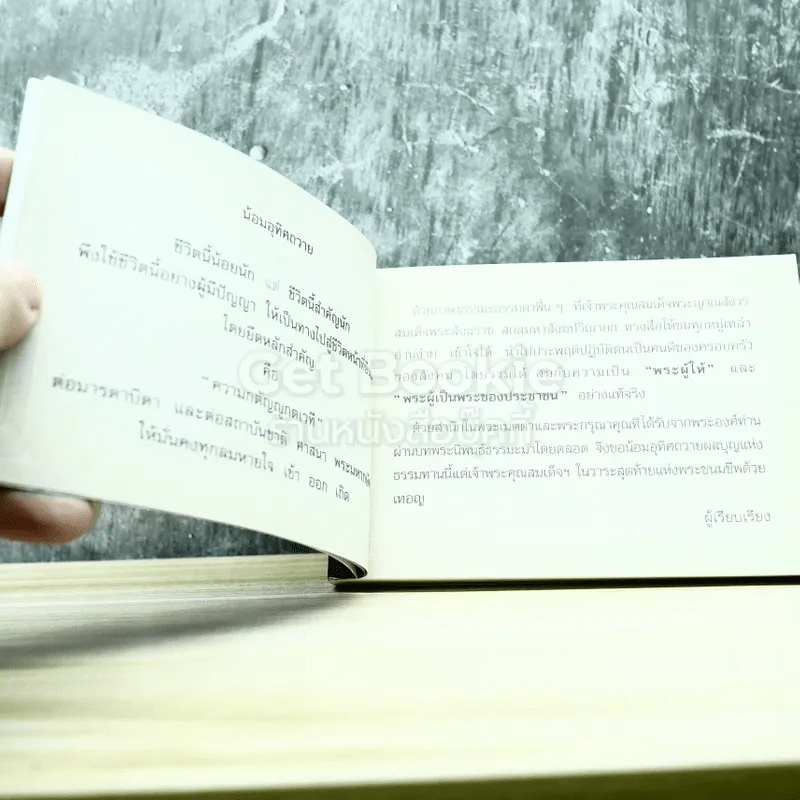 น้อมอุทิศถวาย
ชีวิตนี้น้อยนัก แต่ ชีวิตนี้สำคัญนัก
พึงใช้ชีวิตนี้อย่างผู้มีปัญญา ให้เป็นทางไปสู่ชีวิตหน้าที่
โดยยึดหลักสำคัญ
คือ
"ความกตัญญูกตเวที"
ต่อมารดาบิดา และต่อสถาบันชาติ ศาสนา พระมหา
ให้มั่นคงทุกลมหายใจ เข้า ออก เทิด
ด้วยภาษาธรรมะธรรมดาพื้น ๆ ที่เจ้าพระคุณสมเด็จพระญาณสังวร
สมเด็จพระสังฆราช สกลมหาสังฆปริณายก ทรงสื่อให้ชนทุกหมู่เหล่า
อ่านง่าย เข้าใจได้ นำไปประพฤติปฏิบัติตนเป็นคนดีของครอบครัว
ของสังคม โดยรวมได้ สมกับความเป็น "พระผู้ให้" และ
"พระผู้เป็นพระของประชาชน" อย่างแท้จริง
ด้วยสำนึกในพระเมตตาและพระกรุณาคุณที่ได้รับจากพระองค์ท่าน
ผ่านบทพระนิพนธ์ธรรมะมาโดยตลอด จึงขอน้อมอุทิศถวายผลบุญแห่ง
ธรรมทานนี้แด่เจ้าพระคุณสมเด็จฯ ในวาระสุดท้ายแห่งพระชนมชีพด้วย
เทอญ
ผู้เรียบเรียง
Get Bookie
ร้านหนังสือบุ๊คกี้